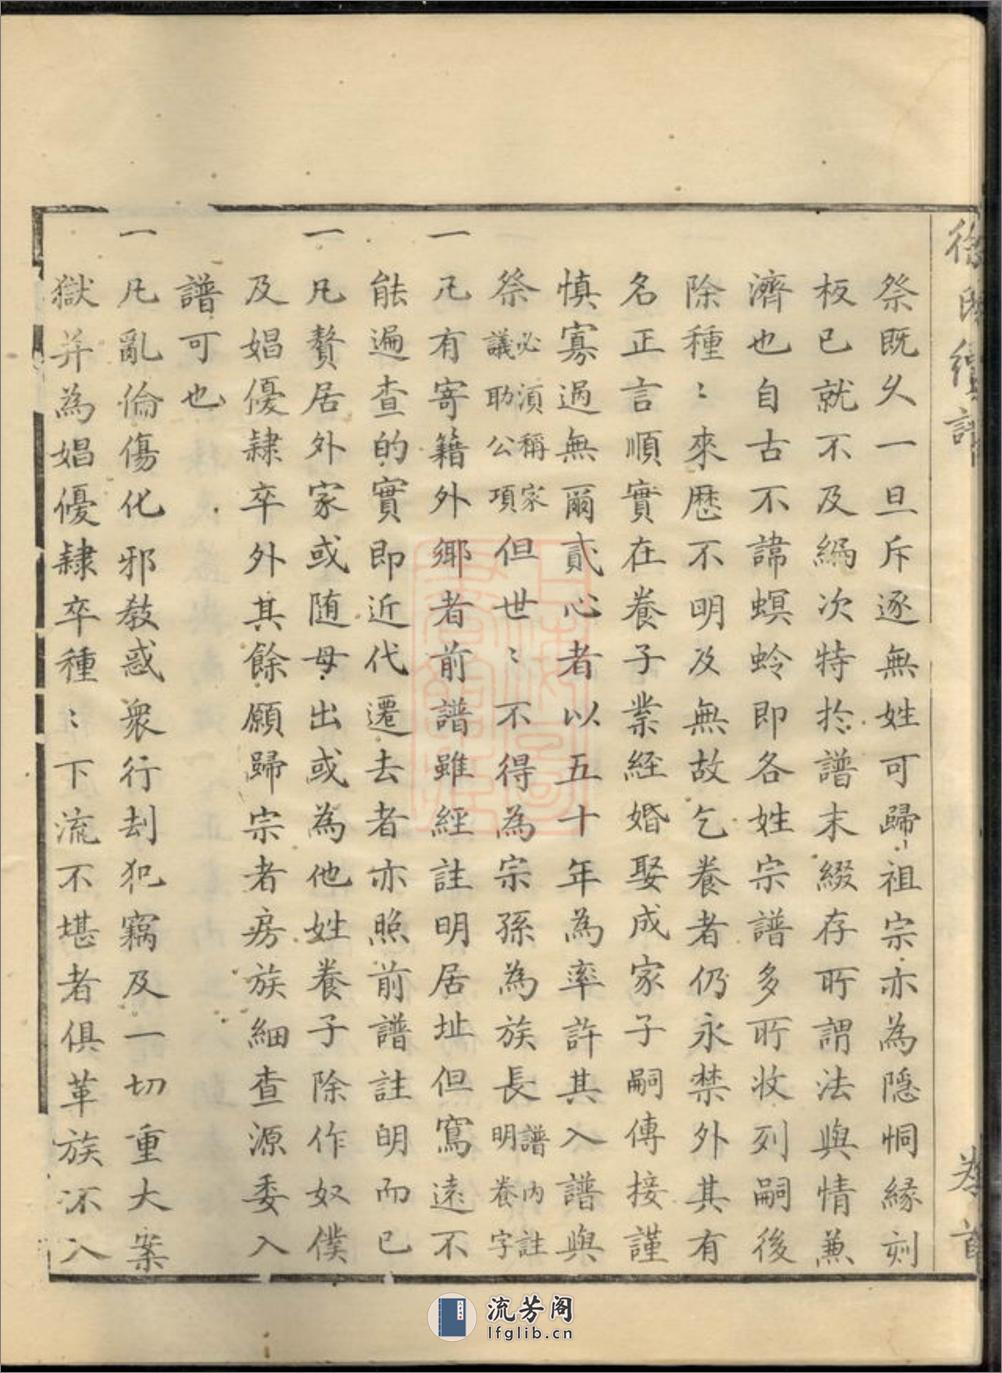 徐氏續譜 卷首
祭既久一旦斥逐無姓可歸祖宗亦為隱恫緣刻
板已就不及編次特扵譜末綴存所謂法與情兼
濟也自古不諱螟蛉即各姓宗譜多所收列嗣後
除種〻來歷不明及無故乞養者仍永禁外其有
名正言順實在養子業経婚娶成家子嗣傳接謹
慎寡過無爾貳心者以五十年為率許其入譜與
祭必須稱家議助公項但世〻不得為宗孫為族長譜内註明養字
一凡有寄籍外鄉者前譜雖經註明居址但寫遠不
能遍查的實即近代遷去者亦照前譜註明而已
一凡贅居外家或随母出或為他姓養子除作奴僕
及娼優隸卒外其餘願歸宗者房族細查源委入
譜可也
一凡亂倫傷化邪教惑衆行刦犯竊及一切重大案
獄并為娼優隸卒種〻下流不堪者俱革族不入
流芳阁
lfglib.cn